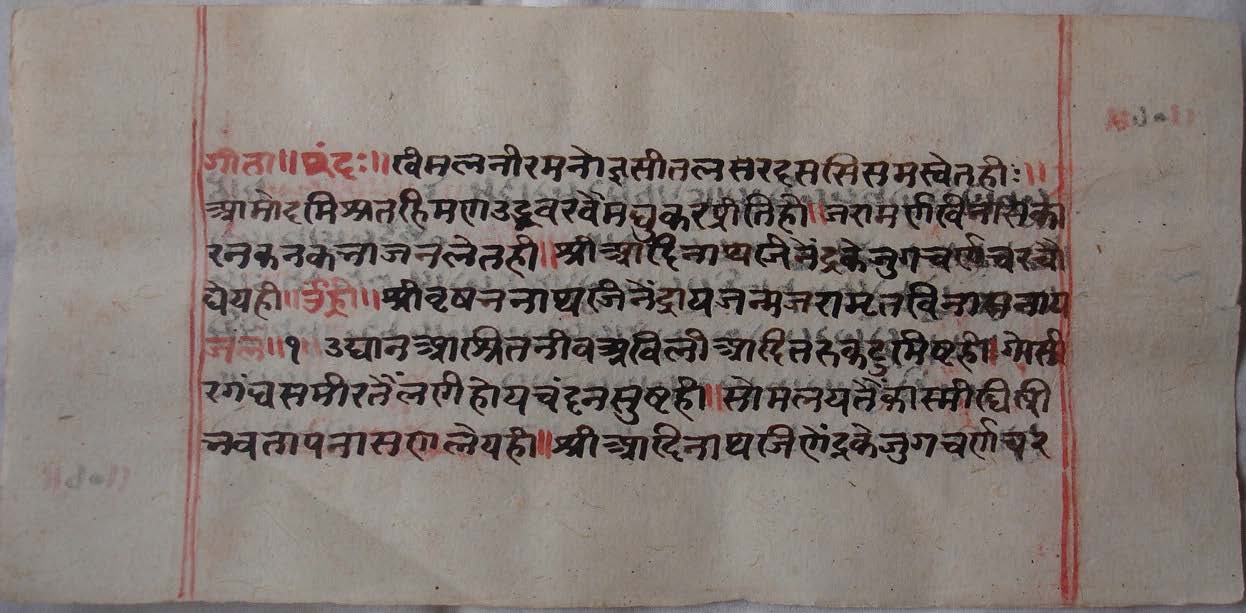 गीता॥ छंदः॥ विमल नीर मनोज्ञ सीतल सरद ससि सम स्वेतही॥
आमोद मिश्रत हिमण उद्भव रवै मधुकर प्रीतिही॥ जरा मर्ण विनासि का
रन कनक भाजन लेतही॥ श्री आदिनाथ जिनेंद्रके जुग चर्ण चरचौ
धेयही॥ उँह्री॥ श्री वृषभनाथ जिनेंद्राय जन्म जरा मृत विनासनाय
जल॥१ उद्यान आश्रित नीव अविली आदि तरु कटु मिष्टही॥ गोसी
र गंध समीर तैं लगी होय चंदन सुष्टही॥ सो मलय तैं कास्मी
भव ताप नास ण लेयही॥ श्री आदिनाथ जिणेंद्रके जुग चर्ण चर